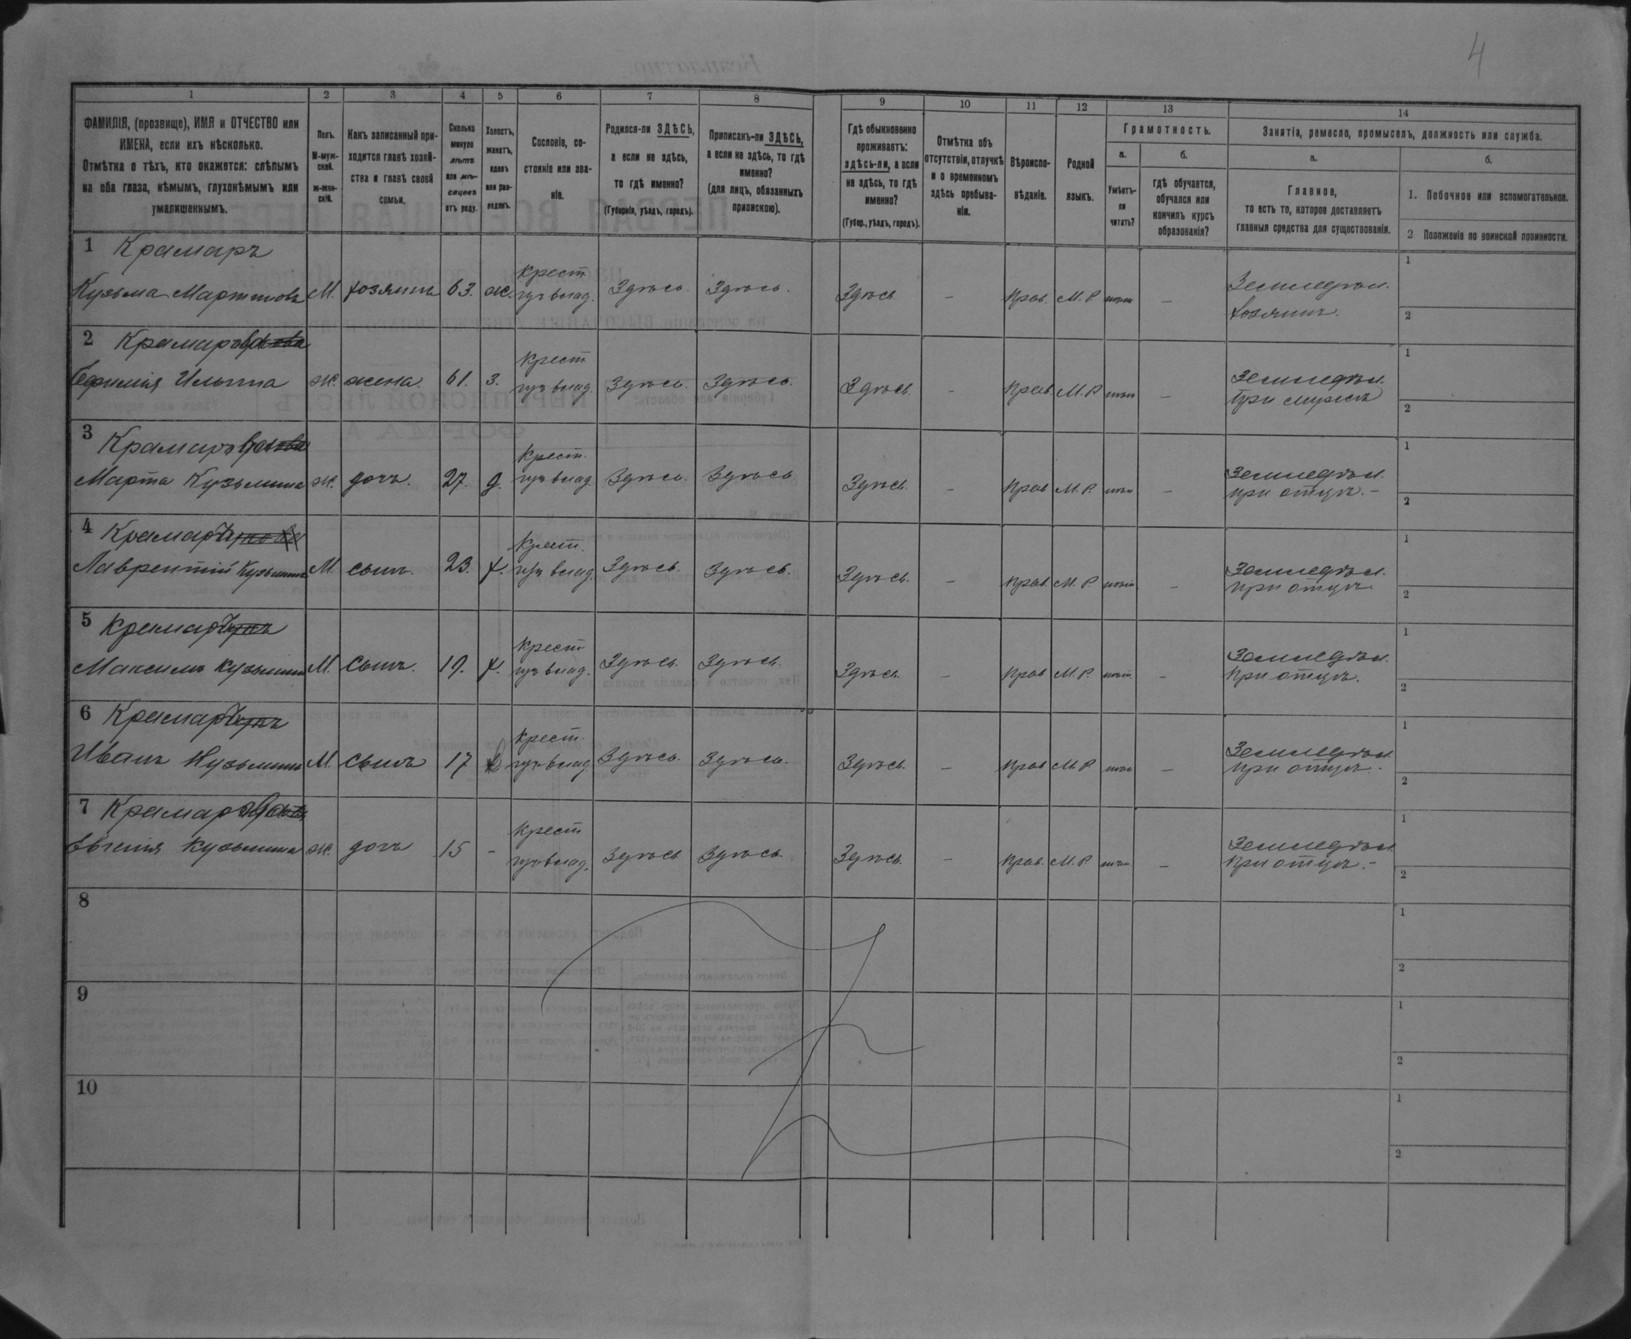 4
1 2 3 4 5 6 7 8 9 10 11 12 13 14
ФАМИЛІЯ, (прозвище), ИМЯ и ОТЧЕСТВО или
ИМЕНА, если ихъ нѣсколько.
Отмѣтка о тѣхъ, кто окажется: слѣпымъ
на оба глаза, нѣмымъ, глухонѣмымъ или
умалишеннымъ.
Полъ.
М-муж-
ской.
ж-жен-
скій.
Какъ записанный при-
ходится главѣ хозяй-
ства и главѣ своей
семьи.
Сколько
минуло
лѣтъ
или мѣ-
сяцевъ
отъ роду.
Холостъ,
женатъ,
вдовъ
или раз-
веденъ.
Сословіе, со-
стояніе или зва-
ніе.
Родился-ли ЗДѢСЬ,
а если не здѣсь,
то гдѣ именно?
(Губернія, уѣздъ, городъ).
Приписанъ-ли ЗДѢСЬ,
а если не здѣсь, то гдѣ
именно?
(для лицъ, обязанныхъ
припискою).
Гдѣ обыкновенно
проживаетъ:
здѣсь-ли, а если
не здѣсь, то гдѣ
именно?
(Губер., уѣздъ, городъ).
Отмѣтка объ
отсутствіи, отлучкѣ
и о временномъ
здѣсь пребыва-
ніи.
Вѣроиспо-
вѣданіе.
Родной
языкъ.
Грамотность.
а.
Умѣетъ-
ли
читать?
б.
гдѣ обучается,
обучался или
кончилъ курсъ
образованія?
Занятіе, ремесло, промыселъ, должность или служба.
а.
Главное,
то есть то, которое доставляетъ
главныя средства для существованія.
б.
1. Побочное или вспомогательное.
2 Положеніе по воинской повинности.
1 Крамаръ
Кузьма Мартиновъ М. хозяинъ 63. ж. Крест. Здѣсь. Здѣсь. Здѣсь. – Прав. М. Р. нѣтъ – Земледѣл. хозяинъ. 1 2
2 Крамаръ
Ефимія Ильина ж. жена. 61. з. Крест. Здѣсь. Здѣсь. Здѣсь. – Прав. М. Р. нѣтъ – Земледѣл. при мужѣ 1 2
3 Крамаръ
Марта Кузьмина ж. дочь. 27. д. Крест. Здѣсь. Здѣсь Здѣсь. – Прав М. Р. нѣтъ – Земледѣл. при отцѣ. – 1 2
4 Крамаръ
Лаврентій Кузьминъ М. сынъ. 23. х. Крест. Здѣсь. Здѣсь. Здѣсь. – Прав. М. Р нѣтъ – Земледѣл. при отцѣ 1 2
5 Крамаръ
Максимъ Кузьминъ М. Сынъ. 19. х. Крест Здѣсь Здѣсь. Здѣсь. – Прав М. Р. нѣтъ – Земледѣл. при отцѣ. 1 2
6 Крамаръ
Иванъ Кузьминъ М. Сынъ 17 Крест. Здѣсь. Здѣсь. Здѣсь. – Прав М. Р нѣтъ – Земледѣл. при отцѣ. 1 2
7 Крамаръ
Евгенія Кузьмина ж. дочь 15 – Крест Здѣсь Здѣсь Здѣсь. – Прав. М. Р. нѣтъ – Земледѣл при отцѣ. – 1 2
8 1 2
9 1 2
10 1 2